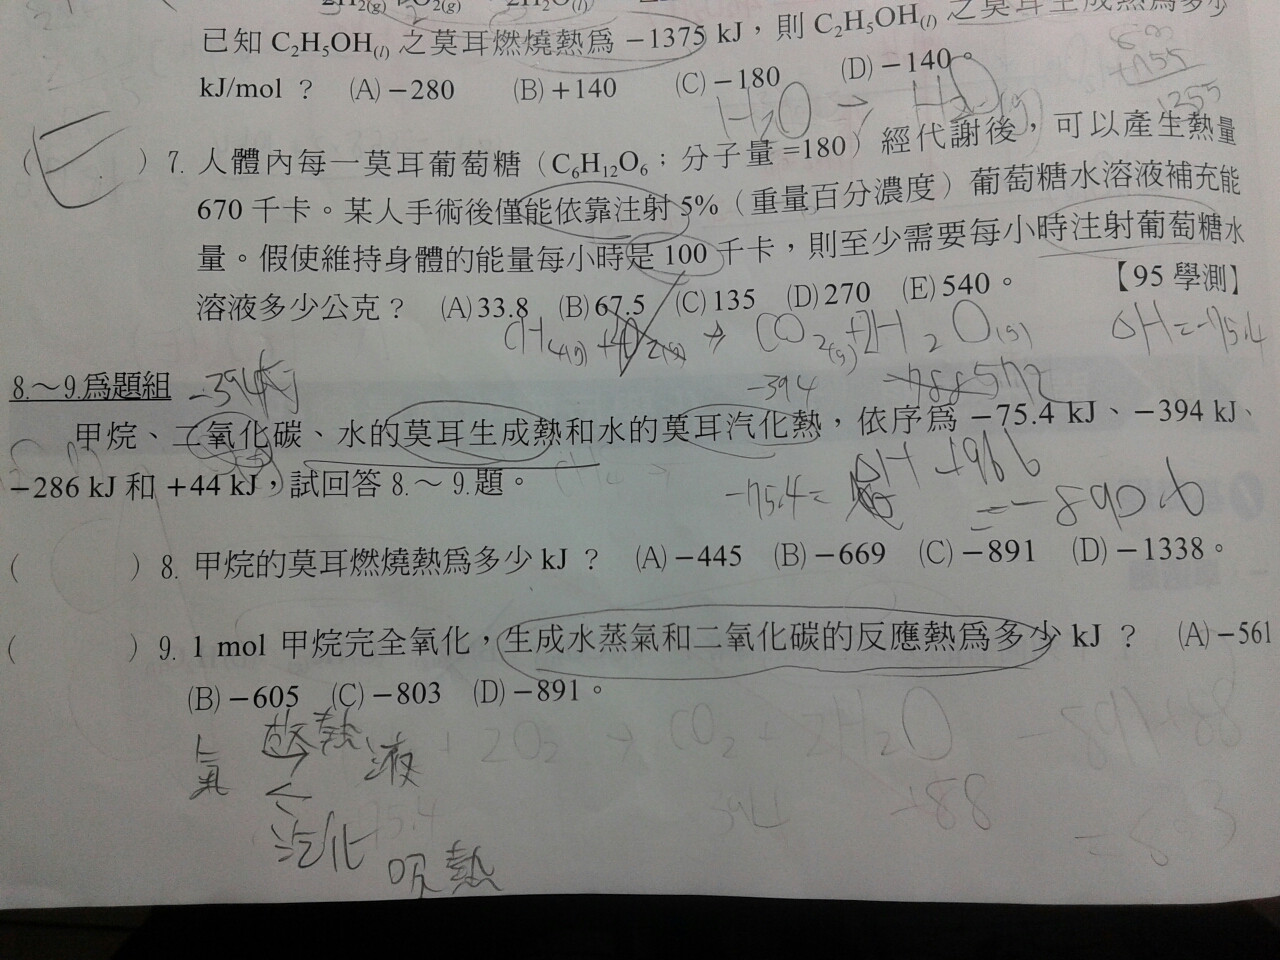 2H₂(g) + O₂(g) 2H₂O(l)
已知 C₂H₅OH(l) 之莫耳燃燒熱為 −1375 kJ，則 C₂H₅OH(l) 之莫耳生成熱為多少
kJ/mol ？ (A)−280 (B)+140 (C)−180 (D)−140。
H₂O → H₂O(g)
( E ) 7. 人體內每一莫耳葡萄糖（C₆H₁₂O₆；分子量=180）經代謝後，可以產生熱量
670 千卡。某人手術後僅能依靠注射 5%（重量百分濃度）葡萄糖水溶液補充能
量。假使維持身體的能量每小時是 100 千卡，則至少需要每小時注射葡萄糖水
溶液多少公克？ (A)33.8 (B)67.5 (C)135 (D)270 (E)540。 【95 學測】
CH₄(g) + O₂(g) → CO₂(g) + 2H₂O(g) ΔH = −75.4
8.～9.為題組 −394kJ
−394 572
甲烷、二氧化碳、水的莫耳生成熱和水的莫耳汽化熱，依序為 −75.4 kJ、−394 kJ、
−286 kJ 和 +44 kJ，試回答 8.～ 9.題。
−75.4 = ΔH + 966
= −890.6
( ) 8. 甲烷的莫耳燃燒熱為多少 kJ ？ (A)−445 (B)−669 (C)−891 (D)−1338。
( ) 9. 1 mol 甲烷完全氧化，生成水蒸氣和二氧化碳的反應熱為多少 kJ ？ (A)−561
(B)−605 (C)−803 (D)−891。
+ 2O₂ → CO₂ + 2H₂O −891+88
氣 放熱→ 液
←
汽化 吸熱
75.4 394 +88
= 803